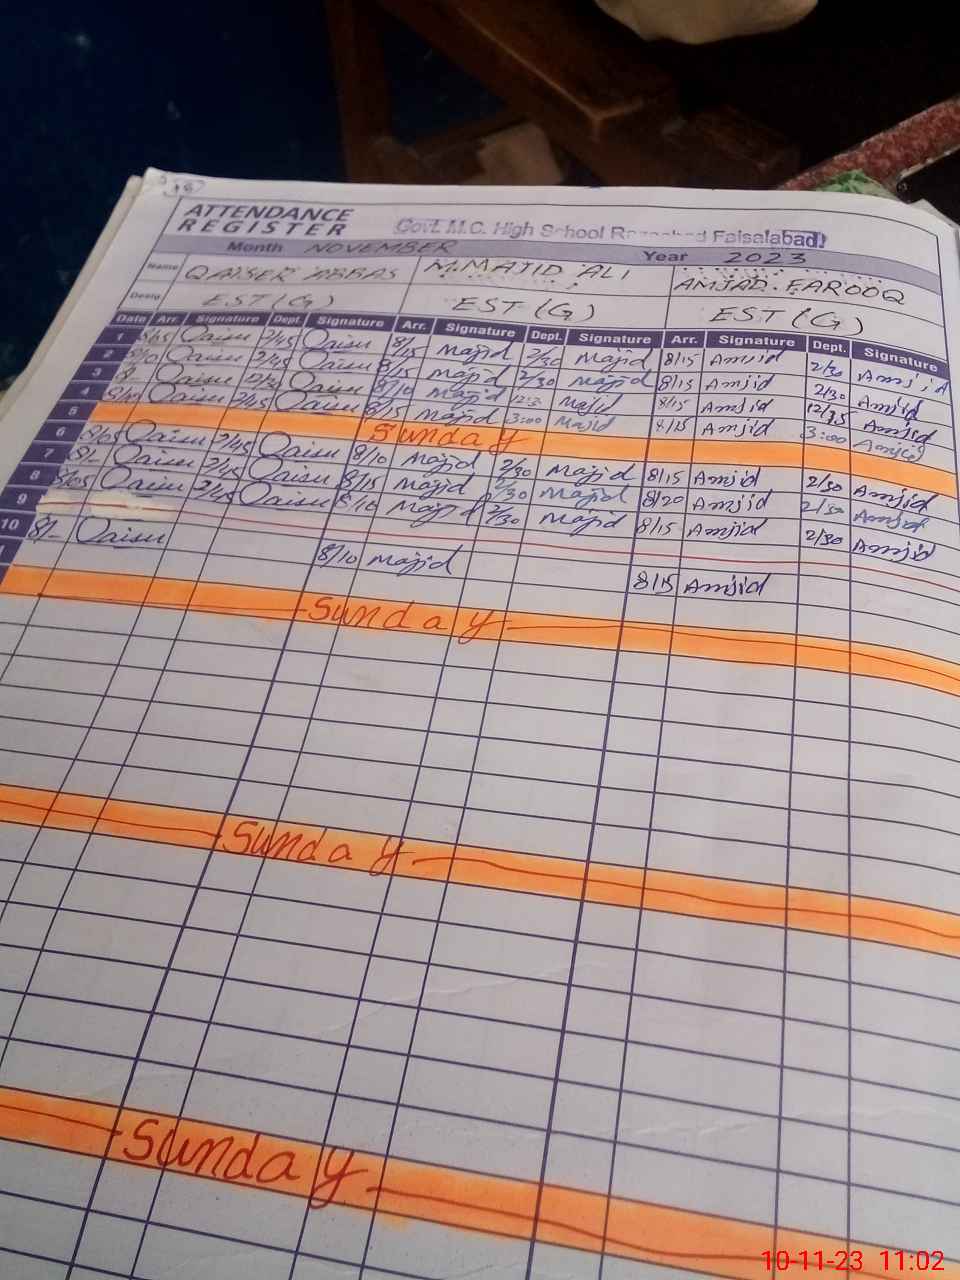 ATTENDANCE
REGISTER
Govt. M.C. High School Faisalabad
Month NOVEMBER Year 2023
Name QAISER ABBAS M.MAJID ALI AMJAD. FAROOQ
Desig EST (G) EST (G) EST (G)
Date Arr. Signature Dept. Signature Arr. Signature Dept. Signature Arr. Signature Dept. Signature
1 8/05 Qaisu 2/45 Qaisu 8/15 Majid 2/30 Majid 8/15 Amjid 2/30 Amjid
2 8/10 Qaisu 2/45 Qaisu 8/15 Majid 2/30 Majid 8/15 Amjid 2/30 Amjid
3 Qaisu Qaisu 8/10 Majid Majid 8/15 Amjid 12/35 Amjid
4 Qaisu Qaisu 8/15 Majid 3:00 Majid 8/15 Amjid 3:00 Amjid
5 Sunday
6 8/05 Qaisu 2/45 Qaisu 8/10 Majid 2/30 Majid 8/15 Amjid 2/30 Amjid
7 8/- Qaisu 2/45 Qaisu 8/15 Majid 2/30 Majid 8/20 Amjid 2/30 Amjid
8 8/05 Qaisu 2/45 Qaisu 8/10 Majid 2/30 Majid 8/15 Amjid 2/30 Amjid
9
10 8/- Qaisu 8/10 Majid 8/15 Amjid
Sunday
Sunday
Sunday
10-11-23 11:02